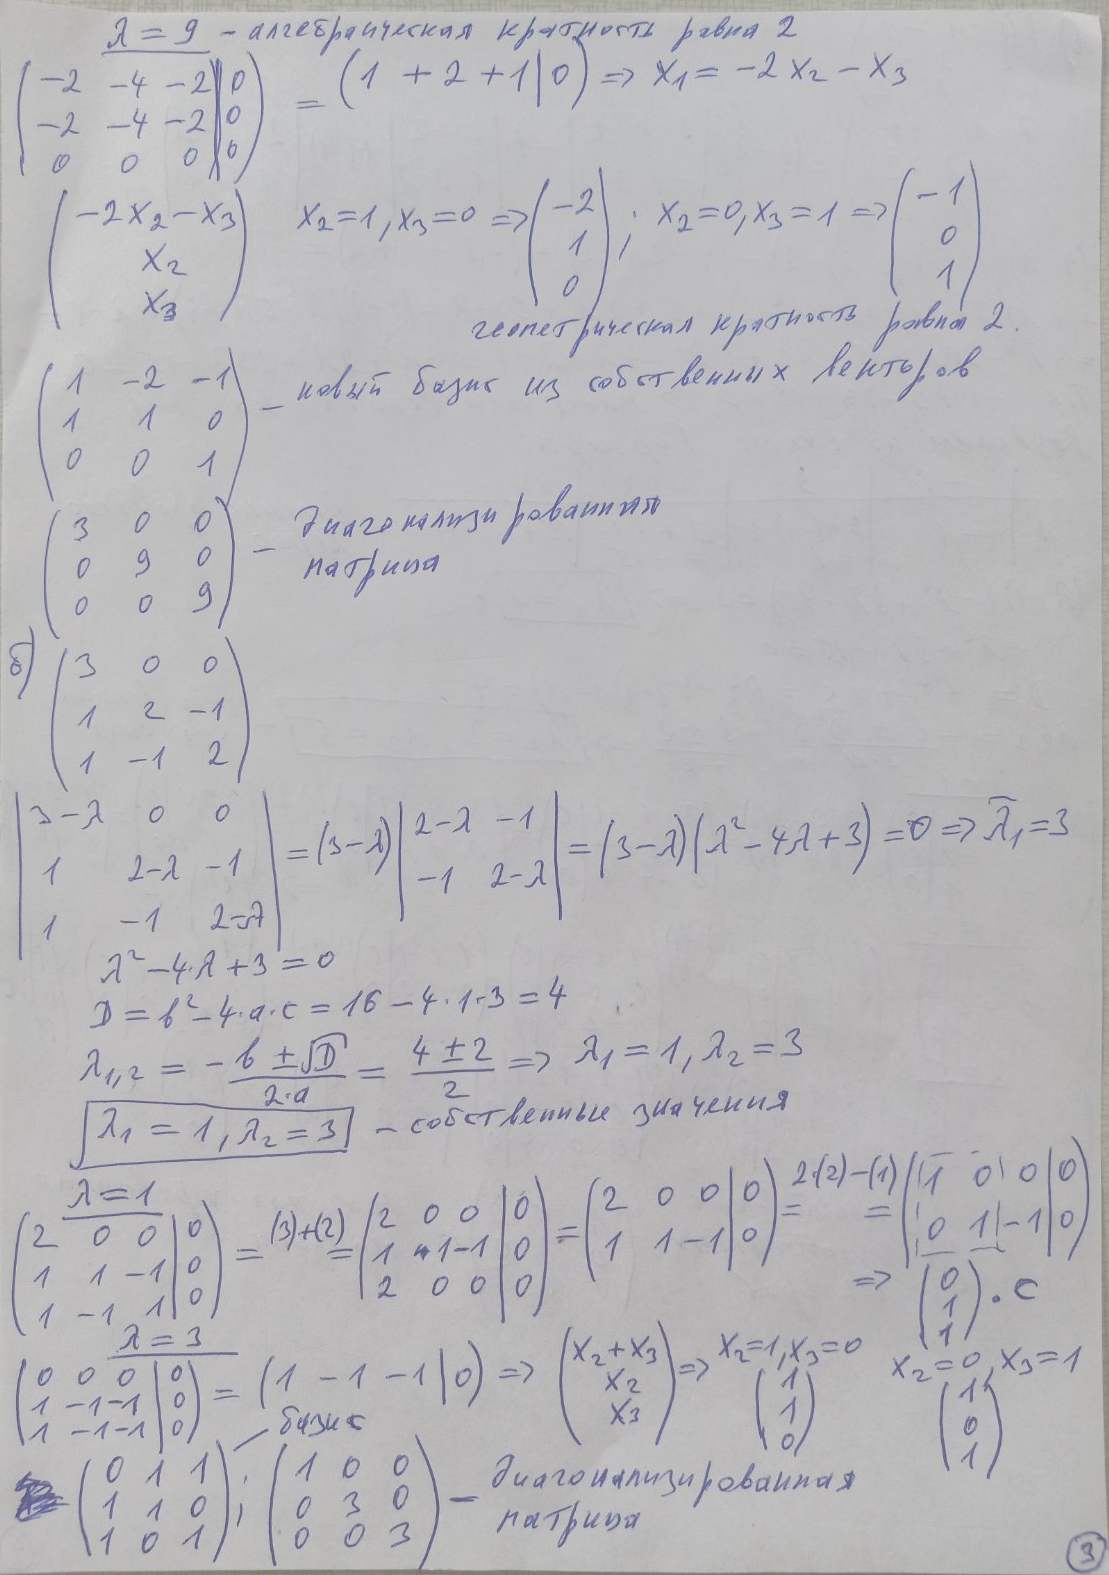 λ = 9 – алгебраическая кратность равна 2
(-2 -4 -2 | 0
-2 -4 -2 | 0
0 0 0 | 0) = (1 + 2 + 1 | 0) => x₁ = -2x₂ - x₃
(-2x₂ - x₃
x₂
x₃) x₂=1, x₃=0 => (-2
1
0) ; x₂=0, x₃=1 => (-1
0
1)
геометрическая кратность равна 2.
(1 -2 -1
1 1 0
0 0 1) – новый базис из собственных векторов
(3 0 0
0 9 0
0 0 9) – диагонализированная
матрица
б) (3 0 0
1 2 -1
1 -1 2)
|3-λ 0 0
1 2-λ -1
1 -1 2-λ| = (3-λ) |2-λ -1
-1 2-λ| = (3-λ)(λ² - 4λ + 3) = 0 => λ̄₁ = 3
λ² - 4·λ + 3 = 0
D = b² - 4·a·c = 16 - 4·1·3 = 4
λ₁,₂ = -b ± √D / 2·a = 4 ± 2 / 2 => λ₁ = 1, λ₂ = 3
λ₁ = 1, λ₂ = 3 – собственные значения
λ = 1
(2 0 0 | 0
1 1 -1 | 0
1 -1 1 | 0) = (3)+(2) = (2 0 0 | 0
1 1 -1 | 0
2 0 0 | 0) = (2 0 0 | 0
1 1 -1 | 0) = 2·(2)-(1) = (1 0 0 | 0
0 1 -1 | 0)
=> (0
1
1) · c
λ = 3
(0 0 0 | 0
1 -1 -1 | 0
1 -1 -1 | 0) = (1 -1 -1 | 0) => (x₂ + x₃
x₂
x₃) => x₂=1, x₃=0
(1
1
0)
x₂=0, x₃=1
(1
0
1)
базис
(0 1 1
1 1 0
1 0 1) ; (1 0 0
0 3 0
0 0 3) – диагонализированная
матрица
3